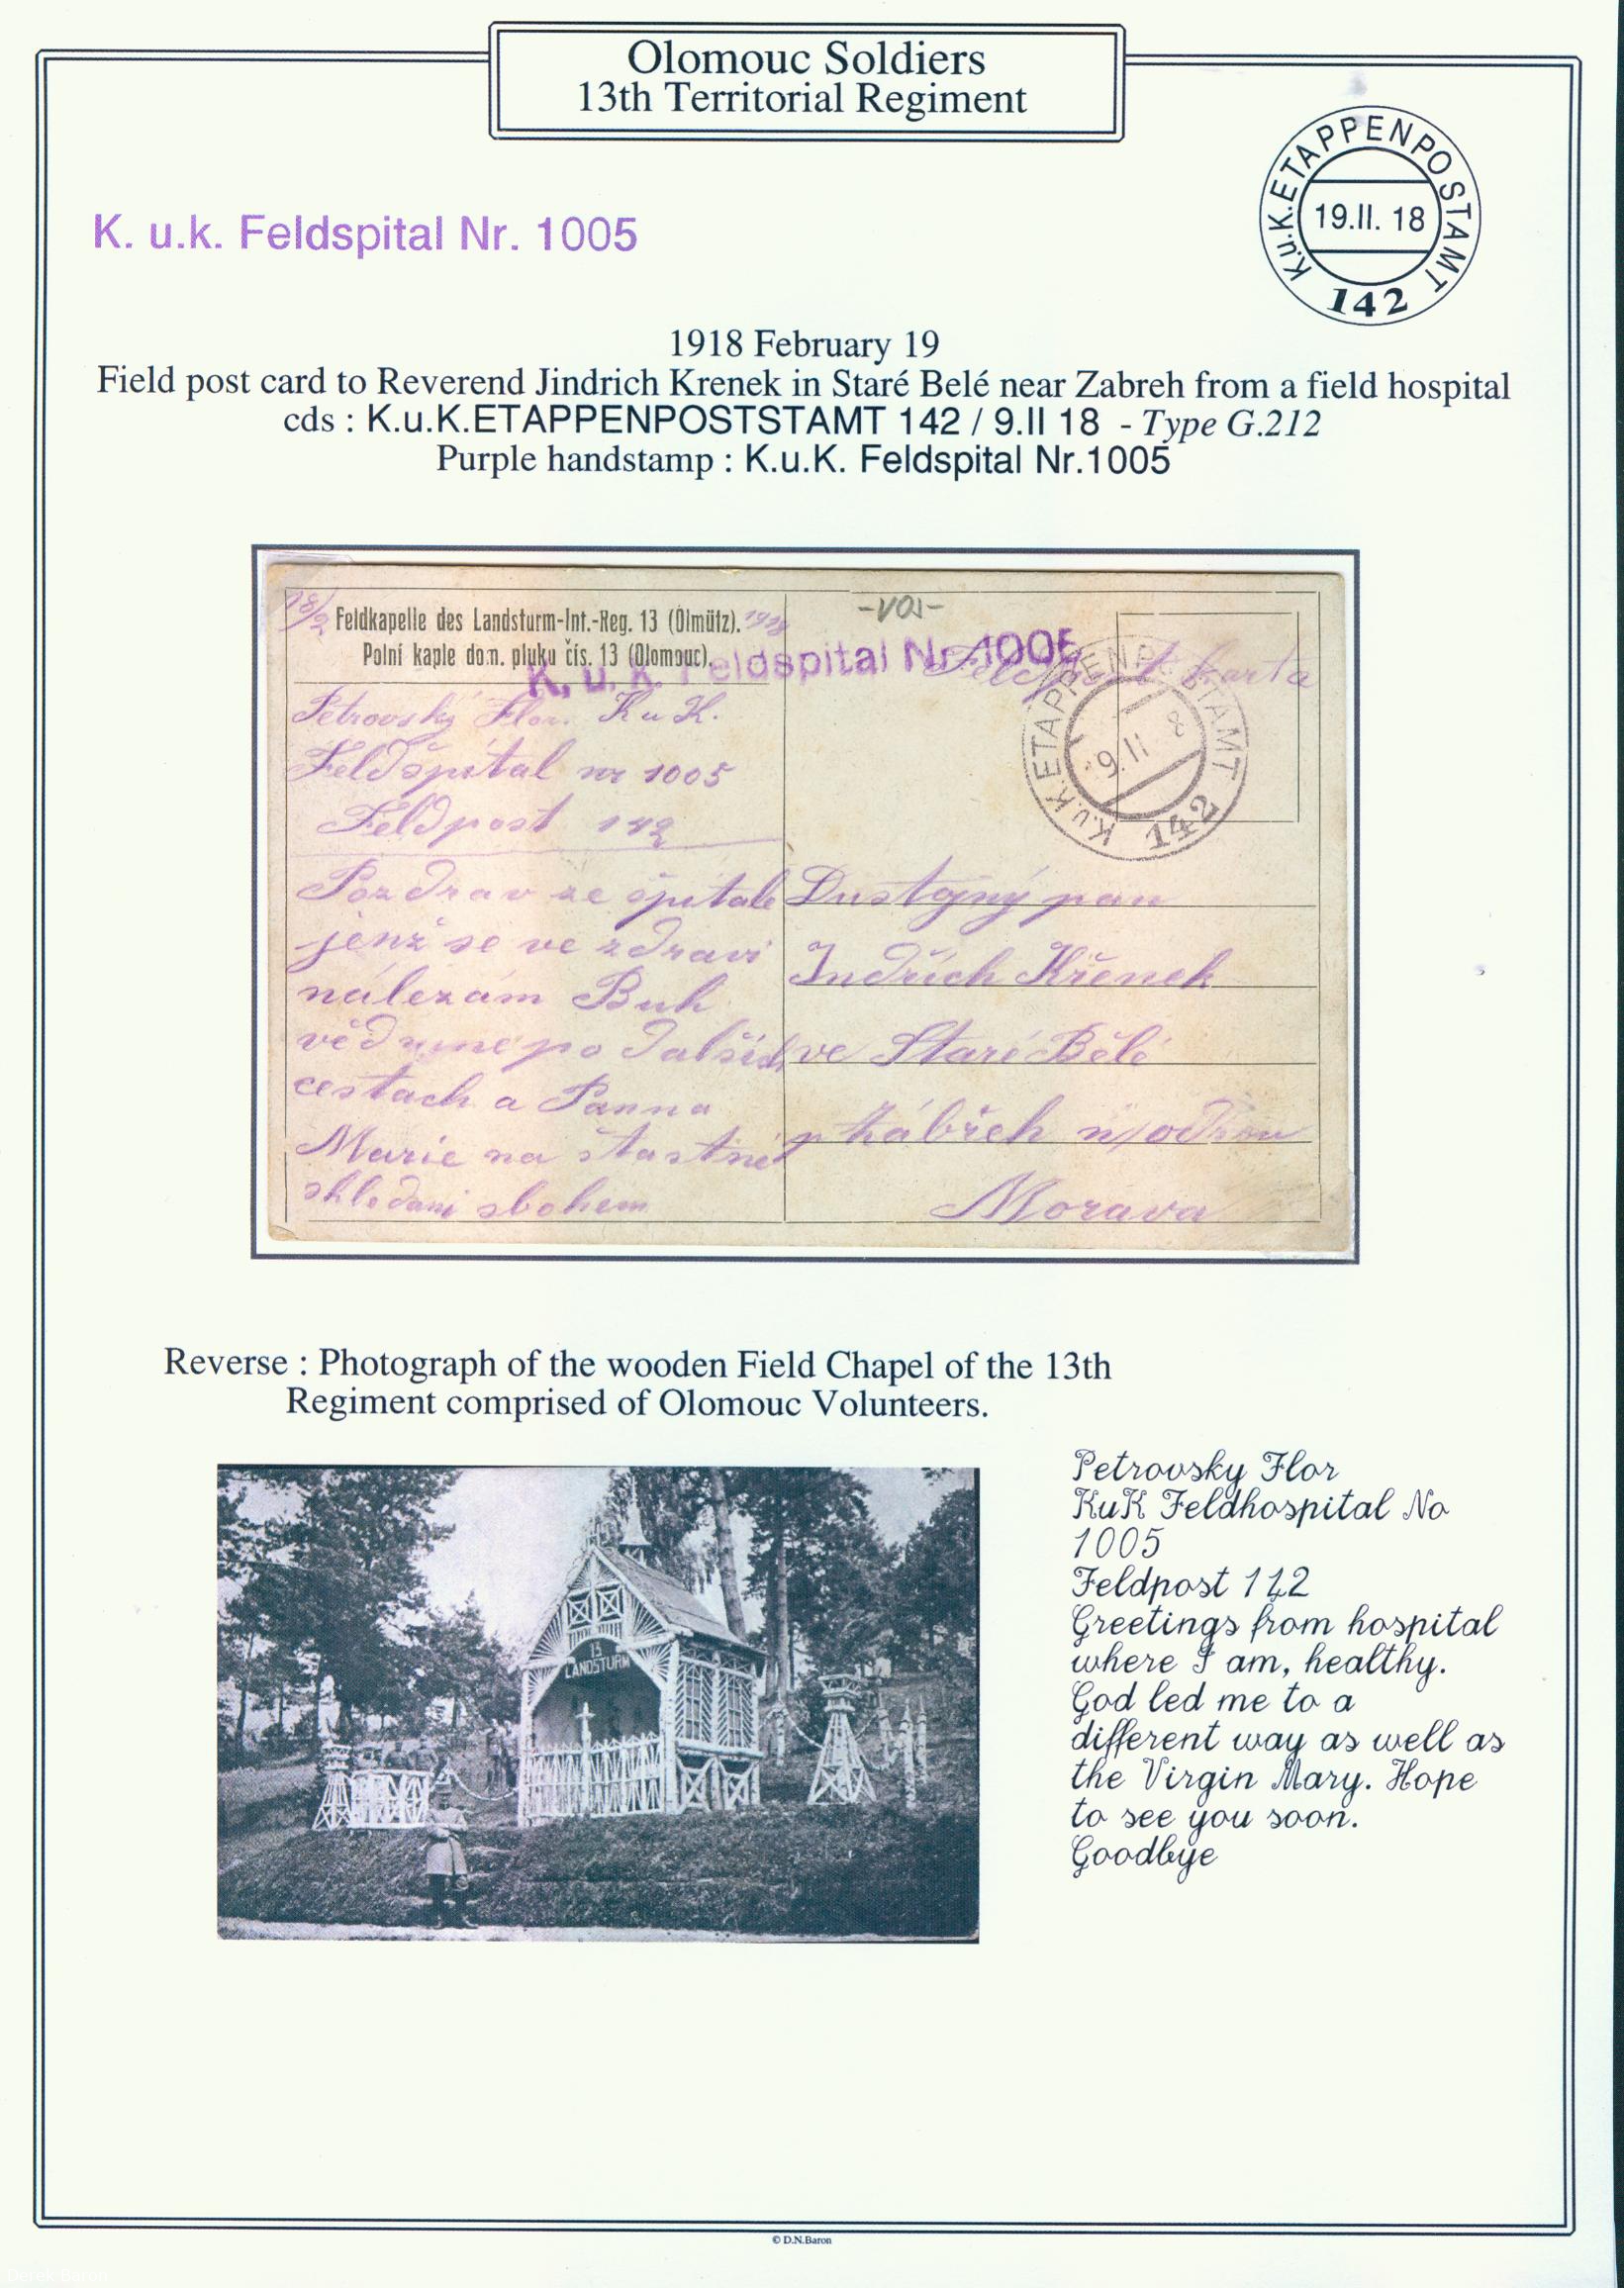 Olomouc Soldiers
13th Territorial Regiment
K.u.K.ETAPPENPOSTAMT
19.II. 18
142
K. u.k. Feldspital Nr. 1005
1918 February 19
Field post card to Reverend Jindrich Krenek in Staré Belé near Zabreh from a field hospital
cds : K.u.K.ETAPPENPOSTSTAMT 142 / 9.II 18 - Type G.212
Purple handstamp : K.u.K. Feldspital Nr.1005
18/2 1918
Feldkapelle des Landsturm-Int.-Reg. 13 (Olmütz).
Polní kaple dom. pluku čís. 13 (Olomouc).
K. u. k. Feldspital Nr. 1005
-VOJ-
karta
K.u.K. ETAPPENPOSTAMT
9.II 8
142
Petrovský Flor. K u K.
Feldšpítal nr 1005
Feldpost 142
Pozdrav ze špitale
jenž se ve zdraví
nálezám Buh
věd mne po dalších
cestach a Panna
Marie na štastné
shledani sbohem
Dustojný pan
Jndřich Křenek
ve Staré Bělé
p Zábřeh n/odrou
Morava
Reverse : Photograph of the wooden Field Chapel of the 13th
Regiment comprised of Olomouc Volunteers.
13
LANDSTURM
Petrovsky Flor
KuK Feldhospital No
1005
Feldpost 142
Greetings from hospital
where I am, healthy.
God led me to a
different way as well as
the Virgin Mary. Hope
to see you soon.
Goodbye
© D.N.Baron
Derek Baron